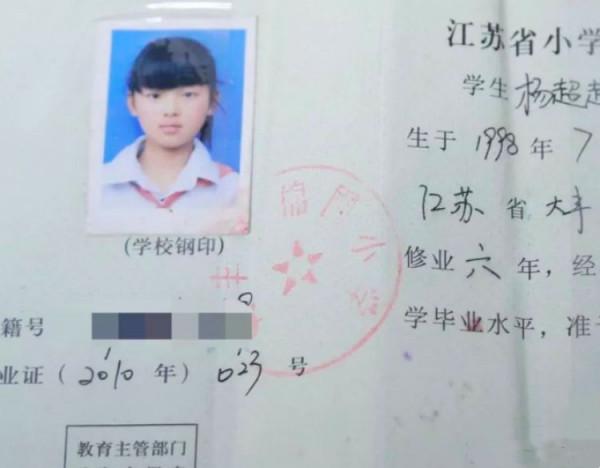 江苏省小学
学生 杨超越
生于 1998 年 7
江苏 省 大丰
修业 六 年，经
学毕业水平，准予
(学校钢印)
籍号
业证（2010 年）023 号
教育主管部门